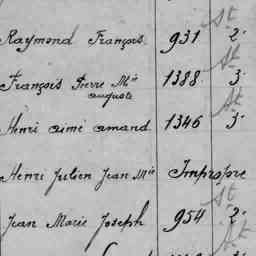 St
Raymond François 931 2
St
François Pierre Mie 1388 3
auguste
St
Henri aimé amand 1346 3
Henri Julien Jean Mie Impropre
St
Jean Marie Joseph 954 2
St